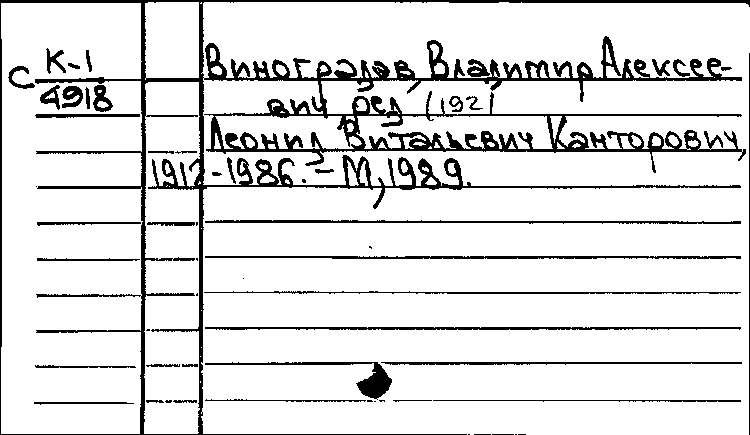 С К-1
4918
Виноградов, Владимир Алексее-
вич ред (1921
Леонид Витальевич Канторович,
1912-1986. - М, 1989.